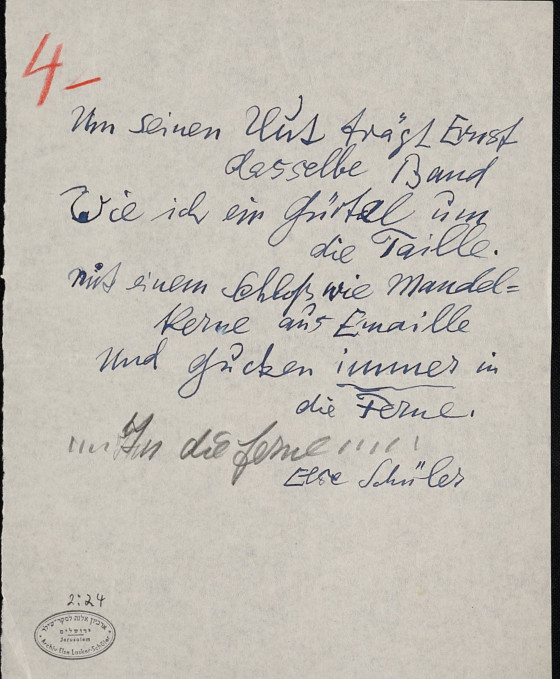 4-
Um seinen Hut trägt Ernst
dasselbe Band
Wie ich ein Gürtel um
die Taille.
mit einem Schloß wie Mandel=
kerne aus Emaille
Und gucken immer in
die Ferne.
,,,, In die ferne ,,,,,
Else Schüler
2:24
ירושלים
Jerusalem
Archiv Else Lasker-Schüler